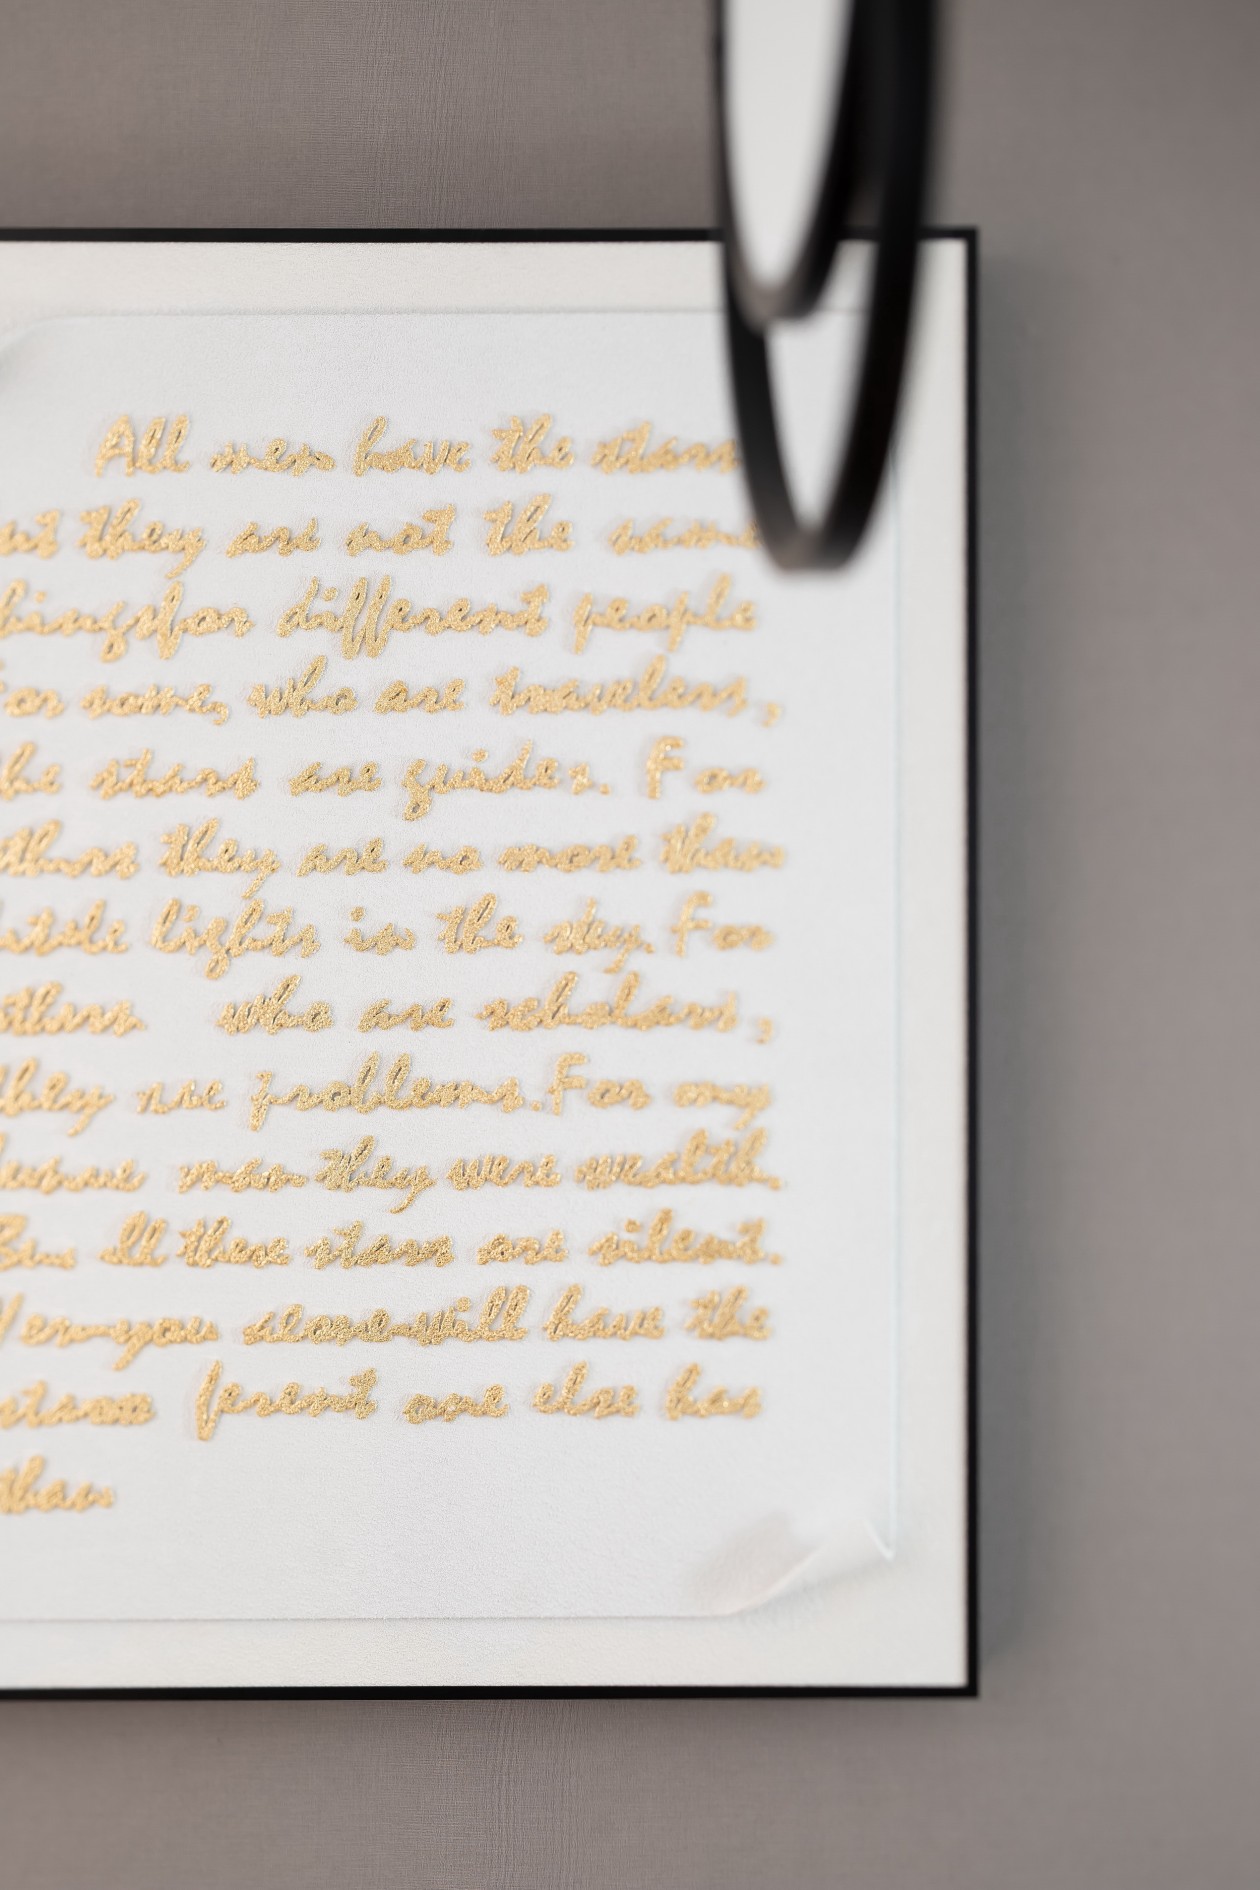 All men have the stars
they are not the same
different people
some, who are travelers,
the stars are guides. For
they are no more than
little lights in the sky. For
others who are scholars,
they are problems. For my
man they were wealth.
all these stars are silent.
you alone will have the
one else has
than